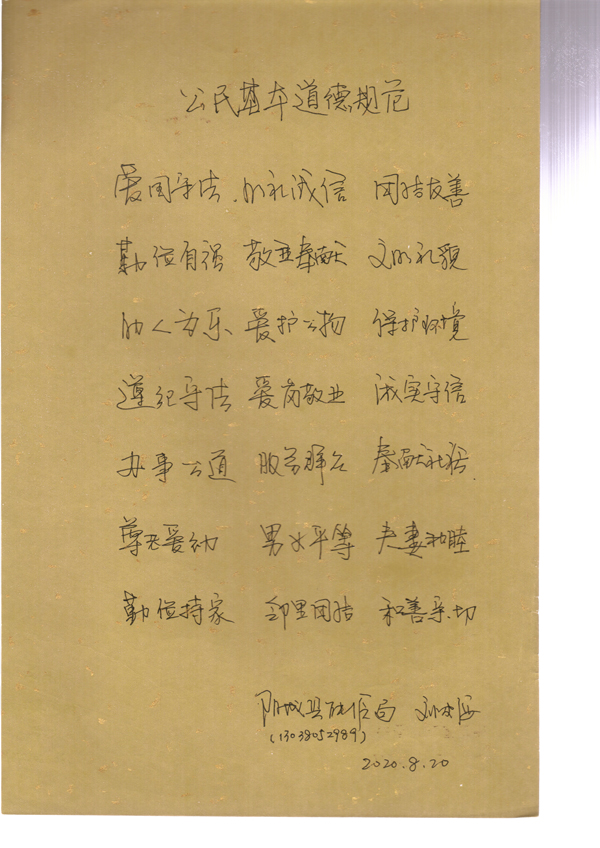 公民基本道德规范
爱国守法 明礼诚信 团结友善
勤俭自强 敬业奉献 文明礼貌
助人为乐 爱护公物 保护环境
遵纪守法 爱岗敬业 诚实守信
办事公道 服务群众 奉献社会
尊老爱幼 男女平等 夫妻和睦
勤俭持家 邻里团结 和善亲切
阳城县 局 刘
(13038052989)
2020.8.20